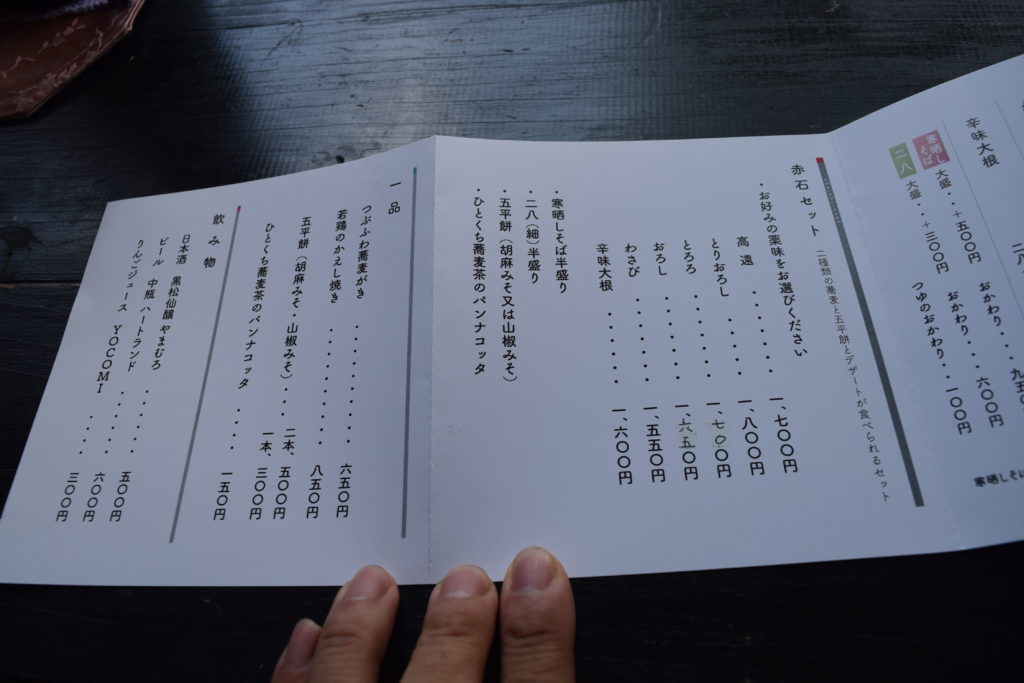 辛味大根
おかわり・・
寒晒しそば 大盛・・＋五〇〇円 おかわり・・・六〇〇円
二八 大盛・・＋三〇〇円 つゆのおかわり・・一〇〇円
寒晒しそば
赤石セット 二種類の蕎麦と五平餅とデザートが食べられるセット
・お好みの薬味をお選びください
高遠・・・・・・一、七〇〇円
とりおろし・・・・・一、八〇〇円
とろろ・・・・・・一、七〇〇円
おろし・・・・・・一、六五〇円
わさび・・・・・・一、五五〇円
辛味大根・・・・・一、六〇〇円
・寒晒しそば半盛り
・二八（細）半盛り
・五平餅（胡麻みそ又は山椒みそ）
・ひとくち蕎麦茶のパンナコッタ
一品
つぶふわ蕎麦がき・・・・・・・・六五〇円
若鶏のかえし焼き・・・・・・・・八五〇円
五平餅（胡麻みそ・山椒みそ）・・・二本、五〇〇円
一本、三〇〇円
ひとくち蕎麦茶のパンナコッタ・・・・一五〇円
飲み物
日本酒 黒松仙醸 やまむろ・・・・・五〇〇円
ビール 中瓶 ハートランド・・・・・六〇〇円
りんごジュース YOCOMI・・・・三〇〇円